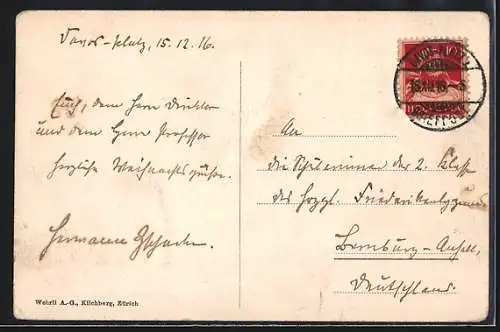 Davos-Platz, 15.12.16.
Euch, dem Herrn Direktor
und dem Herrn Professor
herzliche Weihnachtsgrüße.
Hermann
An
die Schülerinnen der 2. Klasse
des Herzgl. Friederikenlyzeums
Bernburg-Anhalt,
Deutschland.
Wehrli A.-G., Kilchberg, Zürich